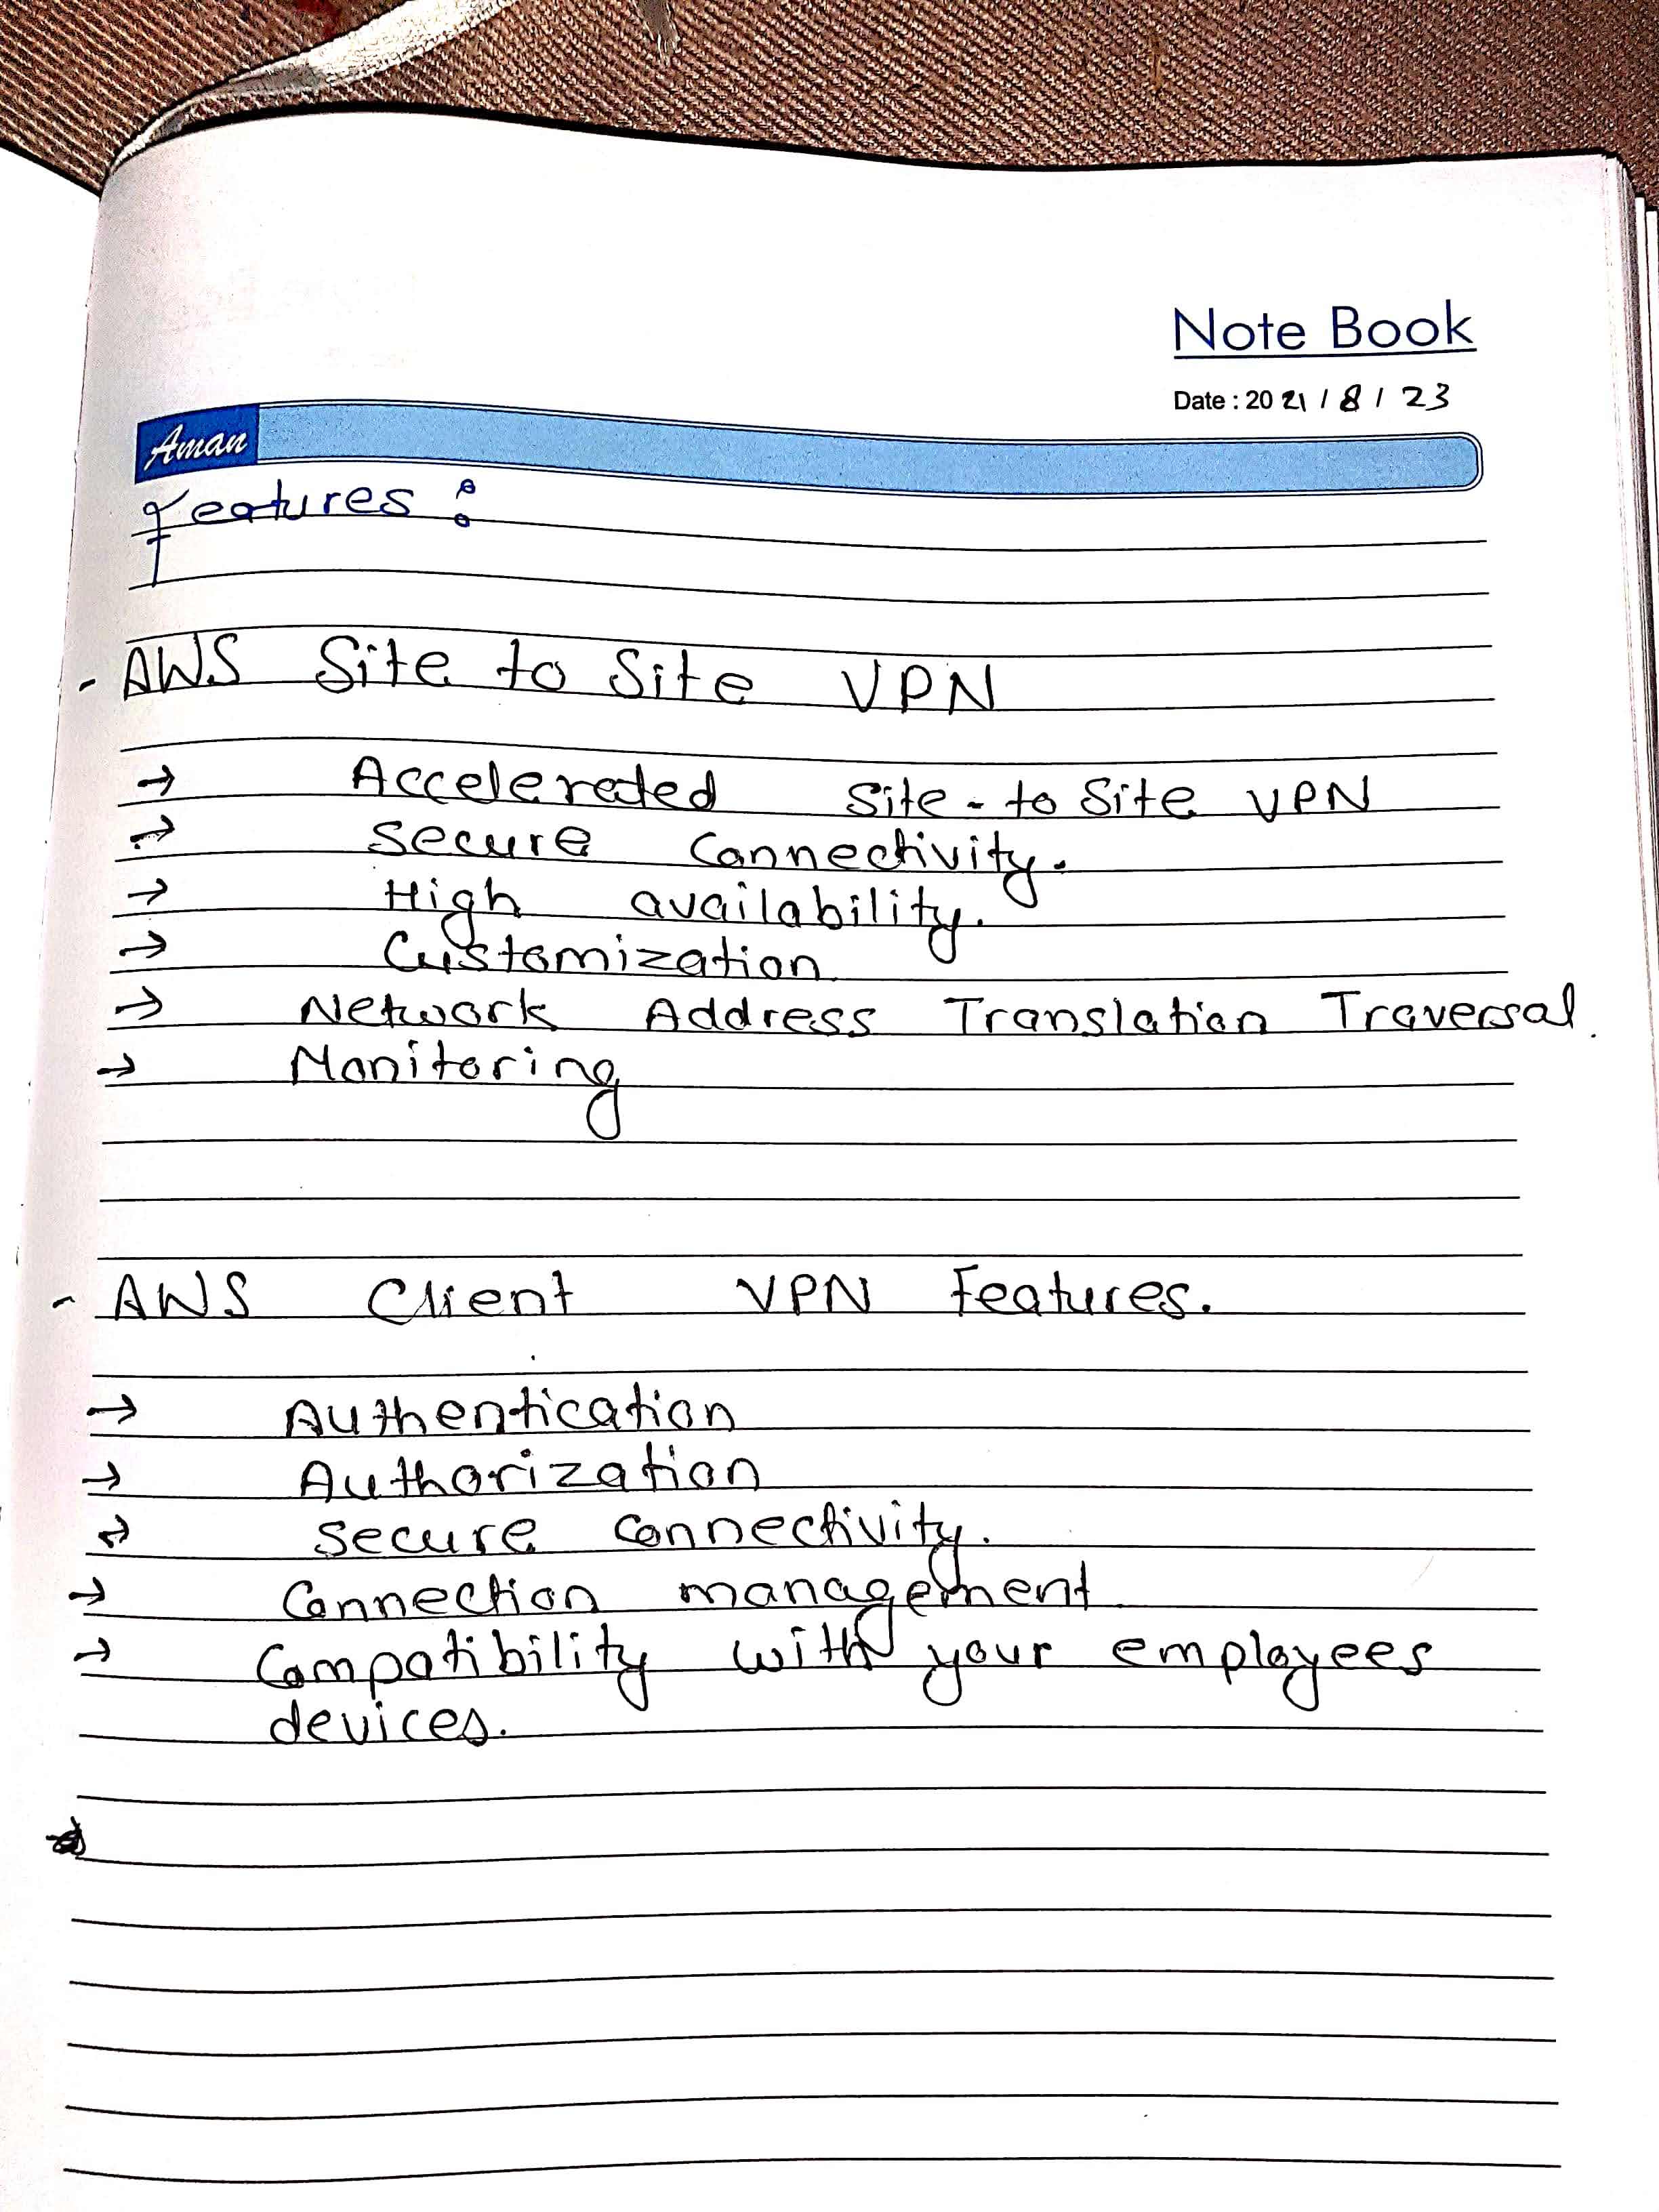 Note Book
Date : 20 21 / 8 / 23
Aman
features :
- AWS Site to Site VPN
→ Accelerated Site - to Site VPN
→ Secure Connectivity.
→ High availability.
→ Customization
→ Network Address Translation Traversal.
→ Monitoring
- AWS Client VPN Features.
→ Authentication
→ Authorization
→ Secure connectivity.
→ Connection management
→ Compatibility with your employees
devices.